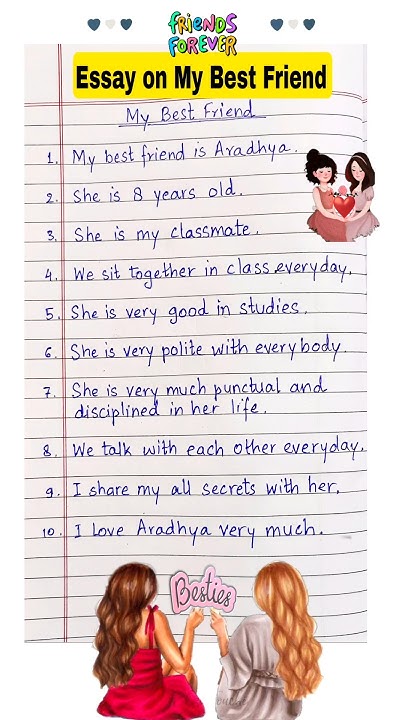 FRIENDS
FOREVER
Essay on My Best Friend
My Best Friend
1. My best friend is Aradhya.
2. She is 8 years old.
3. She is my classmate.
4. We sit together in class everyday.
5. She is very good in studies.
6. She is very polite with everybody.
7. She is very much punctual and
disciplined in her life.
8. We talk with each other everyday.
9. I share my all secrets with her.
10. I Love Aradhya very much.
Besties